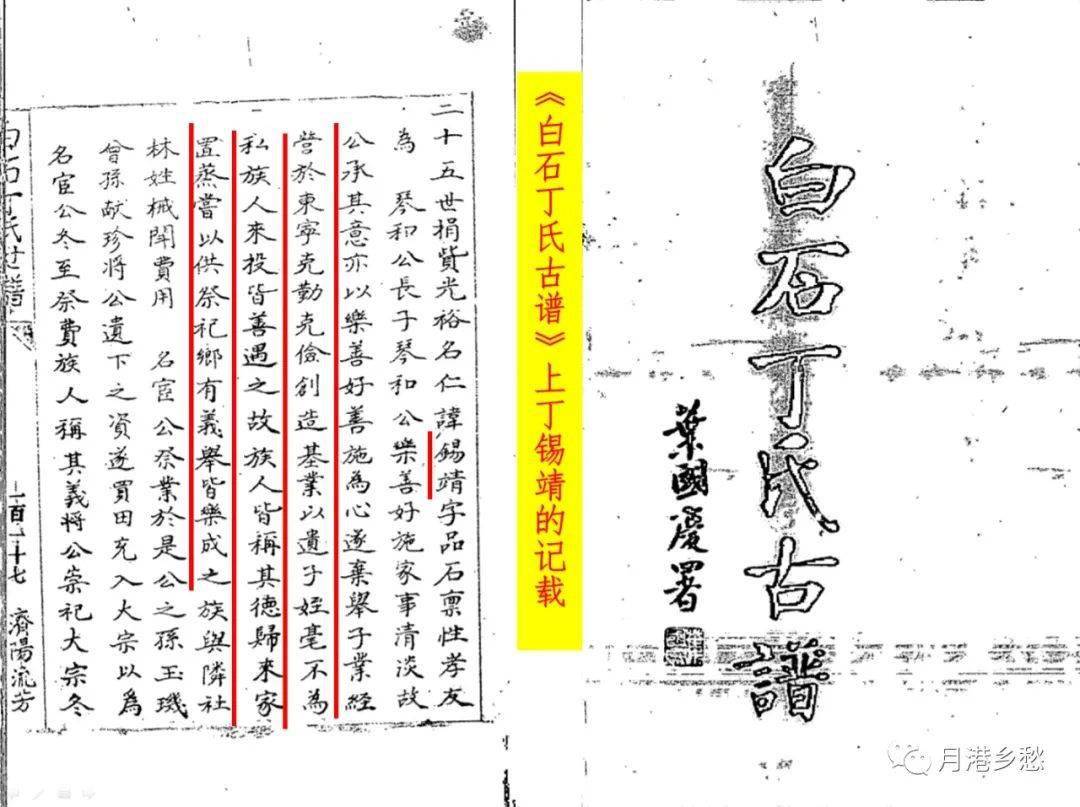 二十五世捐貲光裕名仁諱錫靖字品石禀性孝友
為　琴和公長子琴和公樂善好施家事清淡故
公承其意亦以樂善好善施為心遂棄舉子業經
營於東寧克勤克儉創造基業以遺子姪毫不為
私族人來投皆善遇之故族人皆稱其德歸來家
置蒸嘗以供祭祀鄉有義舉皆樂成之族與隣社
林姓械鬪費用　名宦公祭業於是公之孫玉璣
曾孫献珍將公遺下之資遂買田充入大宗以為
名宦公冬至祭費族人稱其義將公崇祀大宗冬
白石丁氏古譜
一百二十七
濟陽流芳
《白石丁氏古谱》上丁锡靖的记载
白石丁氏古譜
葉國慶署
月港乡愁